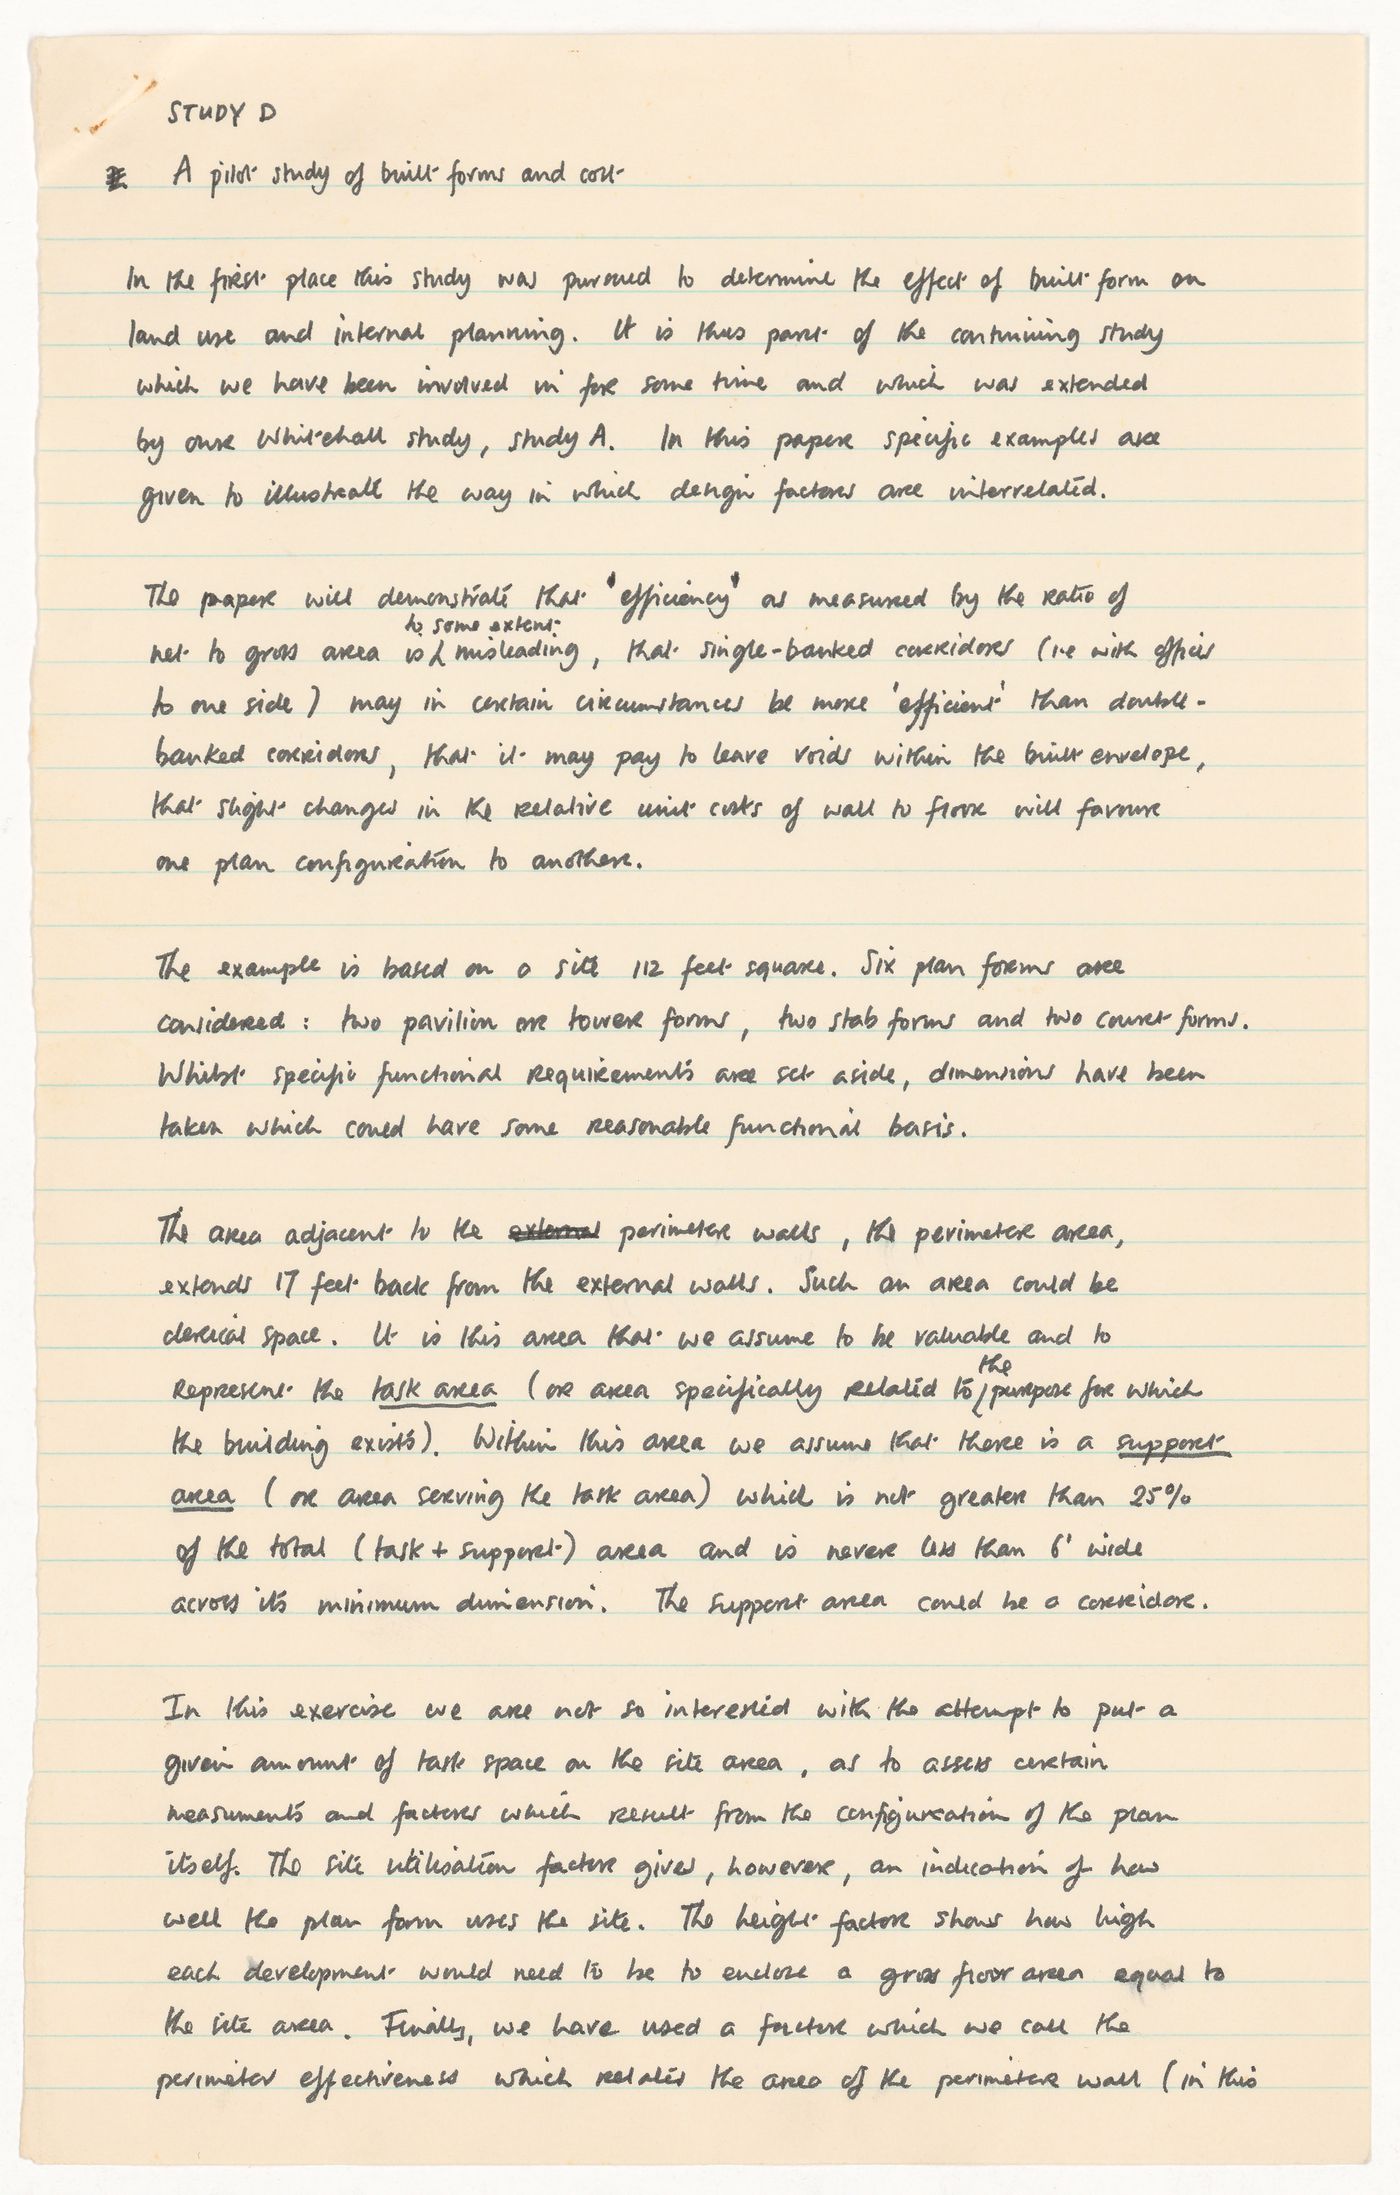 STUDY D
A pilot study of built forms and cost
In the first place this study was pursued to determine the effect of built form on
land use and internal planning. It is thus part of the continuing study
which we have been involved in for some time and which was extended
by our Whitehall study, study A. In this paper specific examples are
given to illustrate the way in which design factors are interrelated.
The paper will demonstrate that 'efficiency' as measured by the ratio of
to some extent
net to gross area is misleading, that single-banked corridors (i.e with offices
to one side) may in certain circumstances be more 'efficient' than double-
banked corridors, that it may pay to leave voids within the built envelope,
that slight changes in the relative unit costs of wall to floor will favour
one plan configuration to another.
The example is based on a site 112 feet square. Six plan forms are
considered: two pavilion or tower forms, two slab forms and two court forms.
Whilst specific functional requirements are set aside, dimensions have been
taken which could have some reasonable functional basis.
The area adjacent to the external perimeter walls, the perimeter area,
extends 17 feet back from the external walls. Such an area could be
clerical space. It is this area that we assume to be valuable and to
the
represent the task area (or area specifically related to purpose for which
the building exists). Within this area we assume that there is a support
area (or area serving the task area) which is not greater than 25%
of the total (task + support) area and is never less than 6' wide
across its minimum dimension. The support area could be a corridor.
In this exercise we are not so interested with the attempt to put a
given amount of task space on the site area, as to assess certain
measuments and factors which result from the configuration of the plan
itself. The site utilisation factor gives, however, an indication of how
well the plan form uses the site. The height factor shows how high
each development would need to be to enclose a gross floor area equal to
the site area. Finally, we have used a factor which we call the
perimeter effectiveness which relates the area of the perimeter wall (in this